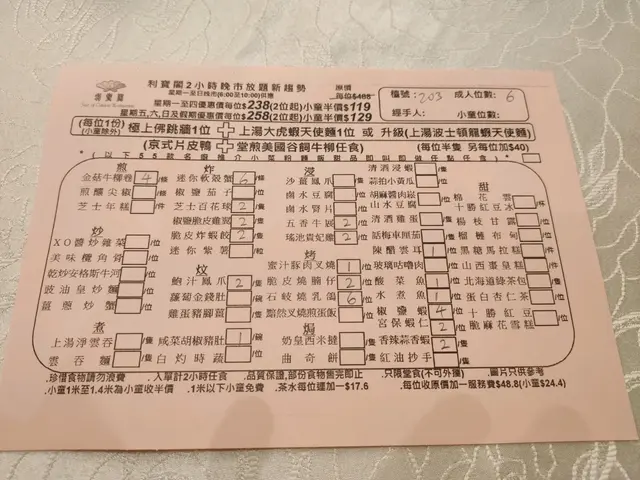 利寶閣2小時晚市放題新趨勢
星期一至日晚市(6:00至10:00)供應
原價
每位$488
星期一至四優惠價每位$238(2位起)小童半價$119
星期五,六,日及假期優惠價每位$258(2位起)小童半價$129
檯號: 203 成人位數: 6
經手人: 小童位數:
(每位1份)
(小童除外)
極上佛跳牆1位 + 上湯大虎蝦天使麵1位 或 升級(上湯波士頓龍蝦天使麵)
(京式片皮鴨 + 堂煎美國谷飼牛柳任食) (每位半隻 另每位加$40)
煎
金菇牛柳卷 4 /條
煎釀尖椒 /條
芝士年糕 /件
炒
XO醬炒蘿蔔糕 /位
美味欖角骨 /位
乾炒安格斯牛河 /位
豉油皇炒麵 /位
薑蔥炒蟹 /位
煮
上湯淨雲吞 /位
雲吞麵 /位
炸
迷你軟殼蟹 6 /隻
椒鹽茄子 /位
芝士百花球 2 /隻
椒鹽脆皮雞翼 2 /隻
脆皮炸蝦餃 2 /隻
迷你紫薯 /粒
炆
鮑汁鳳爪 2 /隻
蘿蔔金錢肚 /位
雞蛋豬腳薑 /位
鹹菜胡椒豬肚 1 /碗
白灼時蔬 /位
浸
沙薑鳳爪 /隻
鹵水豆腐 /位
鹵水腎片 /位
五香牛𦟌 2 /位
瑤池貴妃雞 2 /位
烤
蜜汁豚肉叉燒 1 /位
脆皮燒腩仔 2 /位
石岐燒乳鴿 6 /隻
黯然叉燒煎蛋飯 /位
焗
奶皇西米撻 /隻
曲奇餅 /隻
清酒浸蝦 /隻
蒜拍小黃瓜 /位
胡麻醬肉崧 /位
山水豆腐 /位
清酒雞蛋 /位
話梅車厘茄 /位
陳醋雲耳 1 /位
玻璃咕嚕肉 /位
酸菜魚 1 /位
水煮魚 1 /位
椒鹽蝦 4 /隻
宮保蝦仁 2 /位
香辣蒜香蝦 2 /隻
紅油抄手 /隻
甜
棉花雲 /杯
十勝紅豆冰 /杯
楊枝甘露 /位
榴槤布甸 /位
黑糖馬拉糕 /件
山西棗皇糕 /件
北海道綠茶包 /隻
蛋白杏仁茶 /位
十勝紅豆 /位
脆麻花雪糕 /位
.珍惜食物請勿浪費 .入單計2小時任食 .品質保證,部份食物售完即止 .只限堂食(不可外攜) .圖片只供參考
.小童1米至1.4米為小童收半價 .1米以下小童免費 .茶水每位連加一$17.6 .每位收原價加一服務費$48.8(小童$24.4)